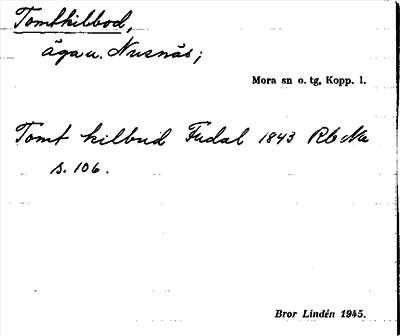 Tomtkilbod,
äga u. Nusnäs;
Mora sn o. tg, Kopp. l.
Tomt kilbud Fudal 1843 Rb
s. 106.
Bror Lindén 1945.